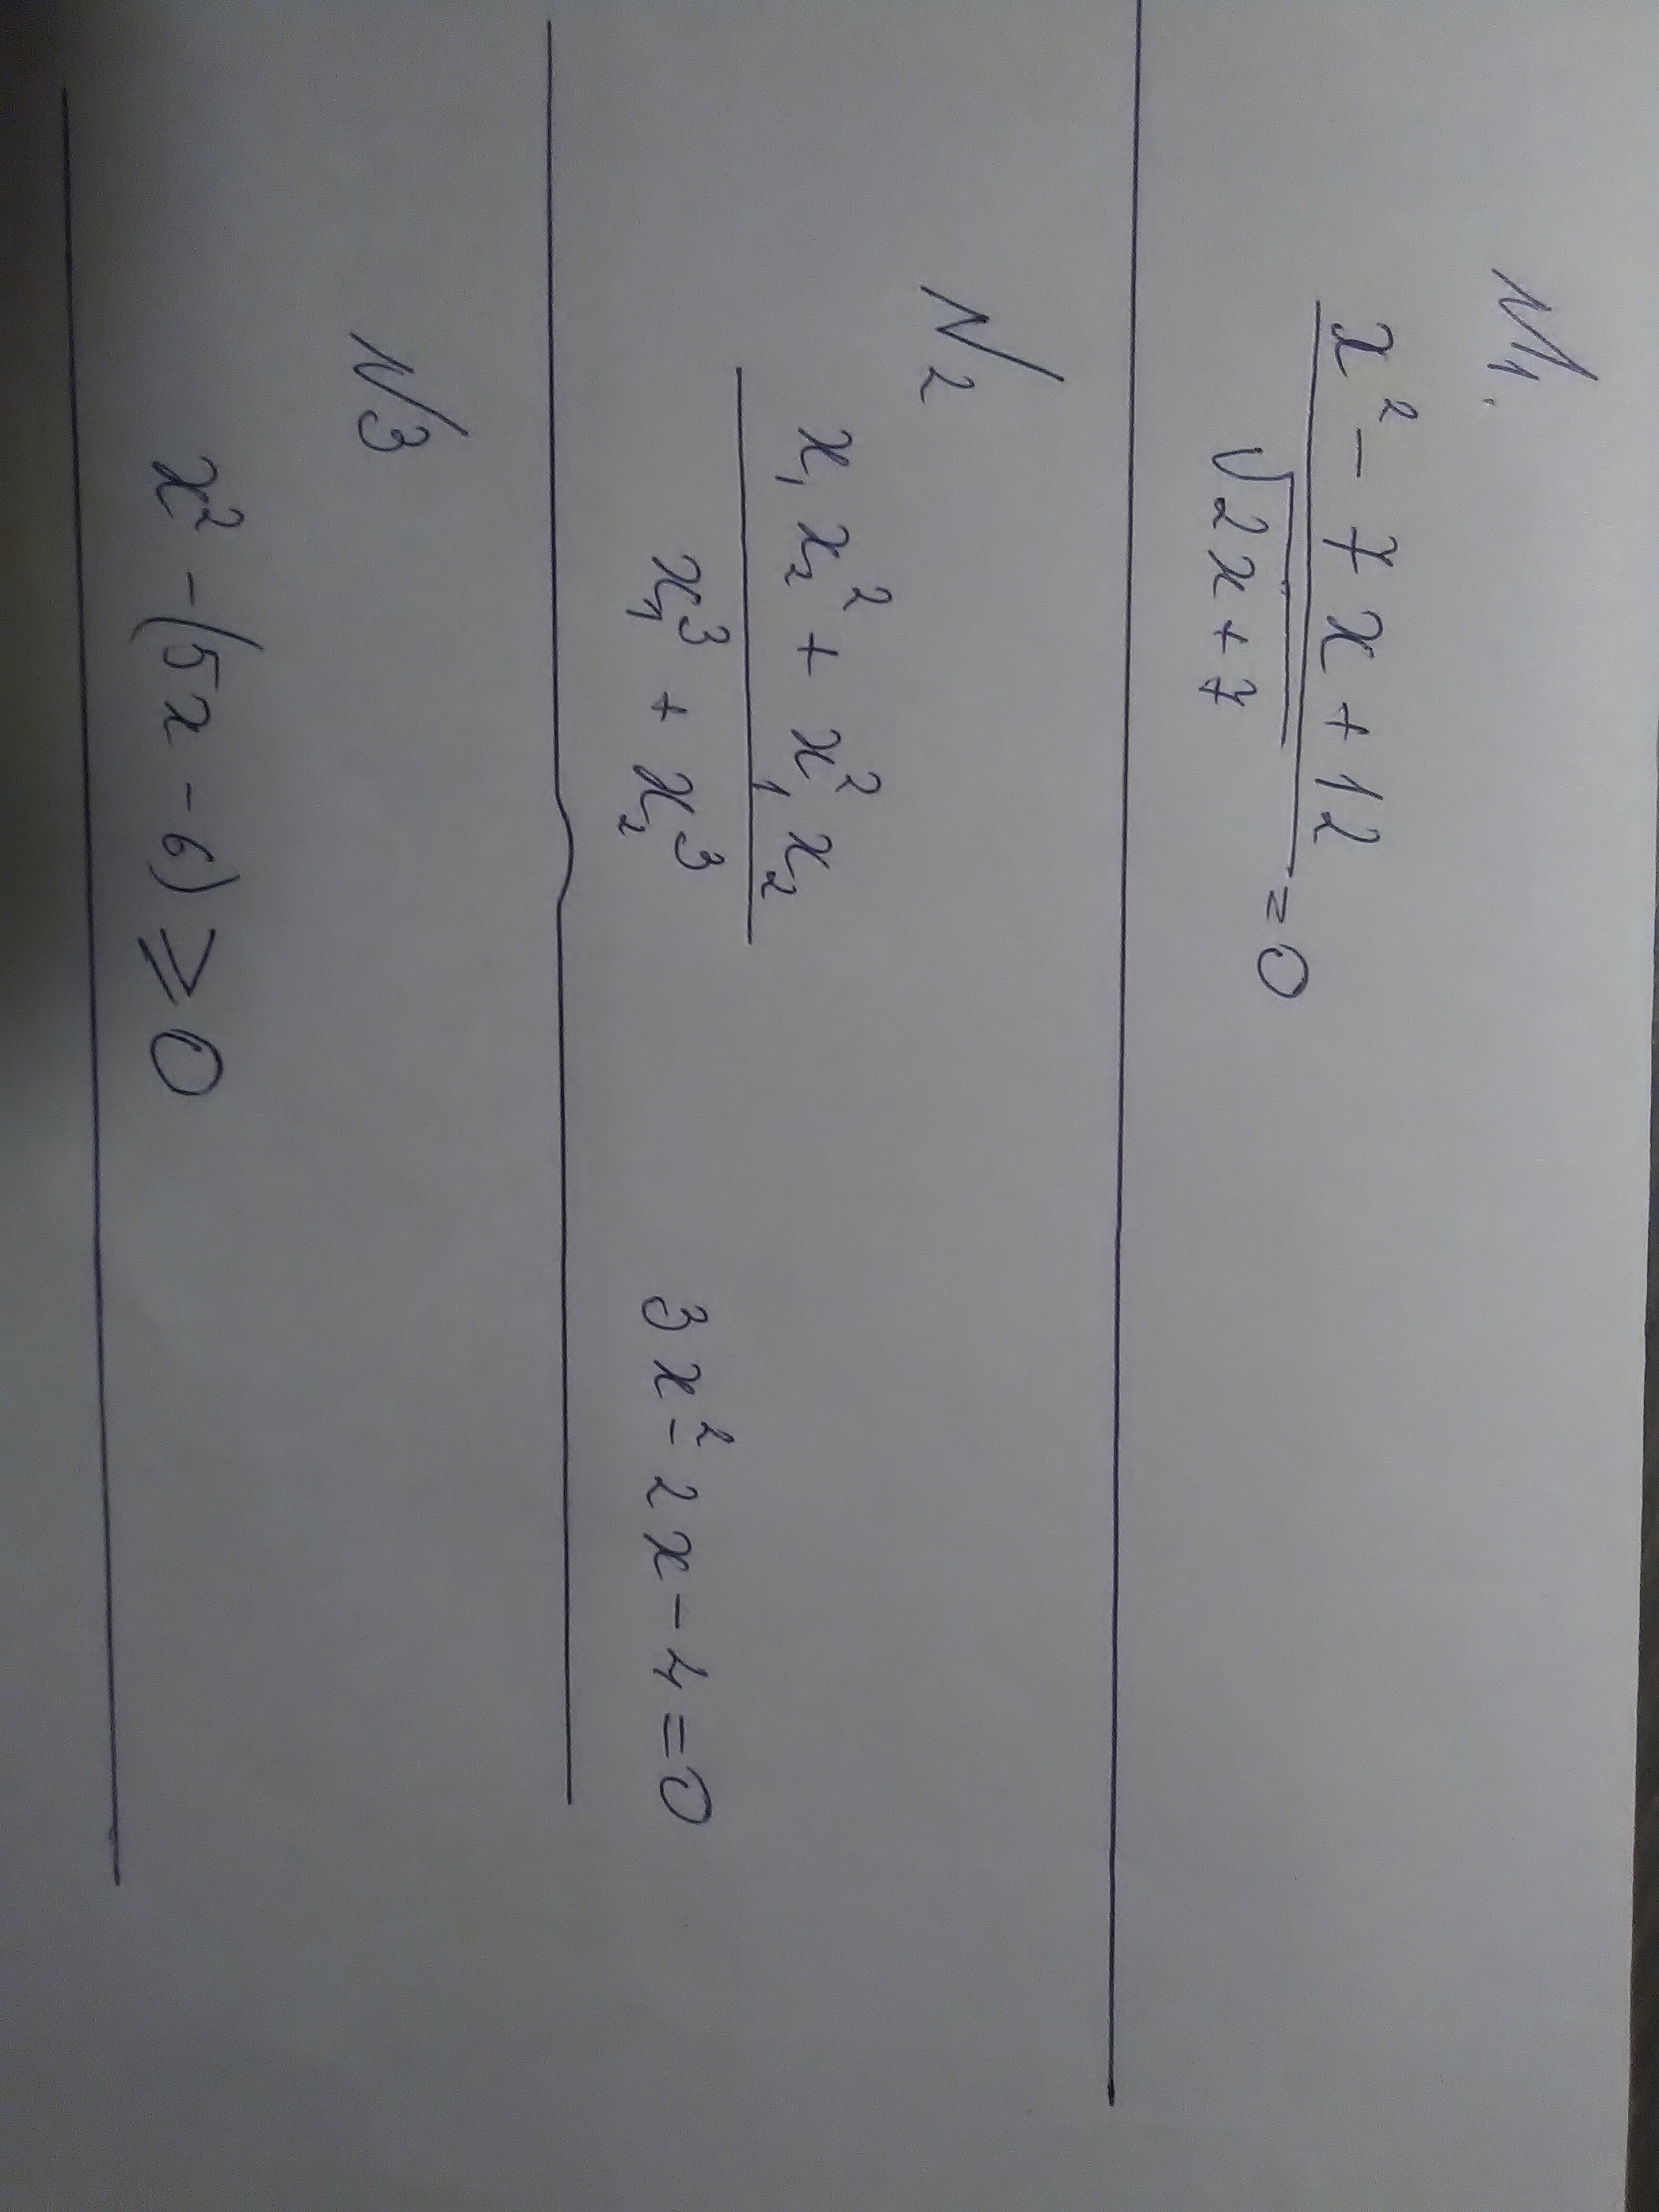 N1.
x² - 7x + 12
√2x + 7 = 0
N2
x₁x₂² + x₁²x₂
x₁³ + x₂³
3x² - 2x - 4 = 0
N3
x² - (5x - 6) ⩾ 0